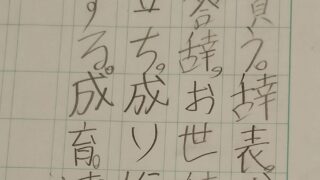 う。辞表。
答辞。お世
立ち。成り
する。成育。